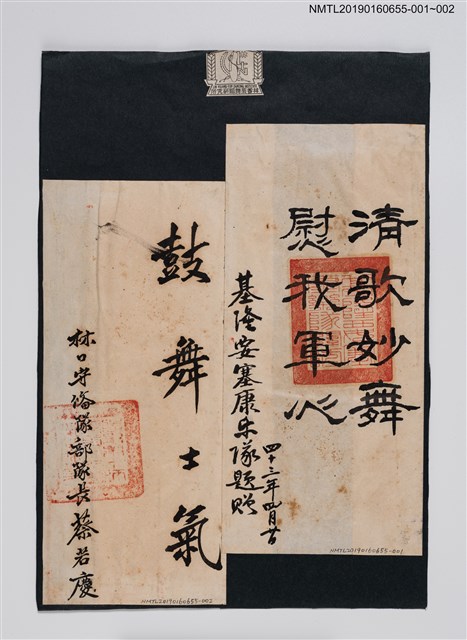 NMTL20190160655-001~002
清歌妙舞
慰我軍心
基隆要塞康樂隊題贈
四十三年四月廿
NMTL20190160655-001
鼓舞士氣
林口守備隊部隊長蔡若慶
NMTL20190160655-002